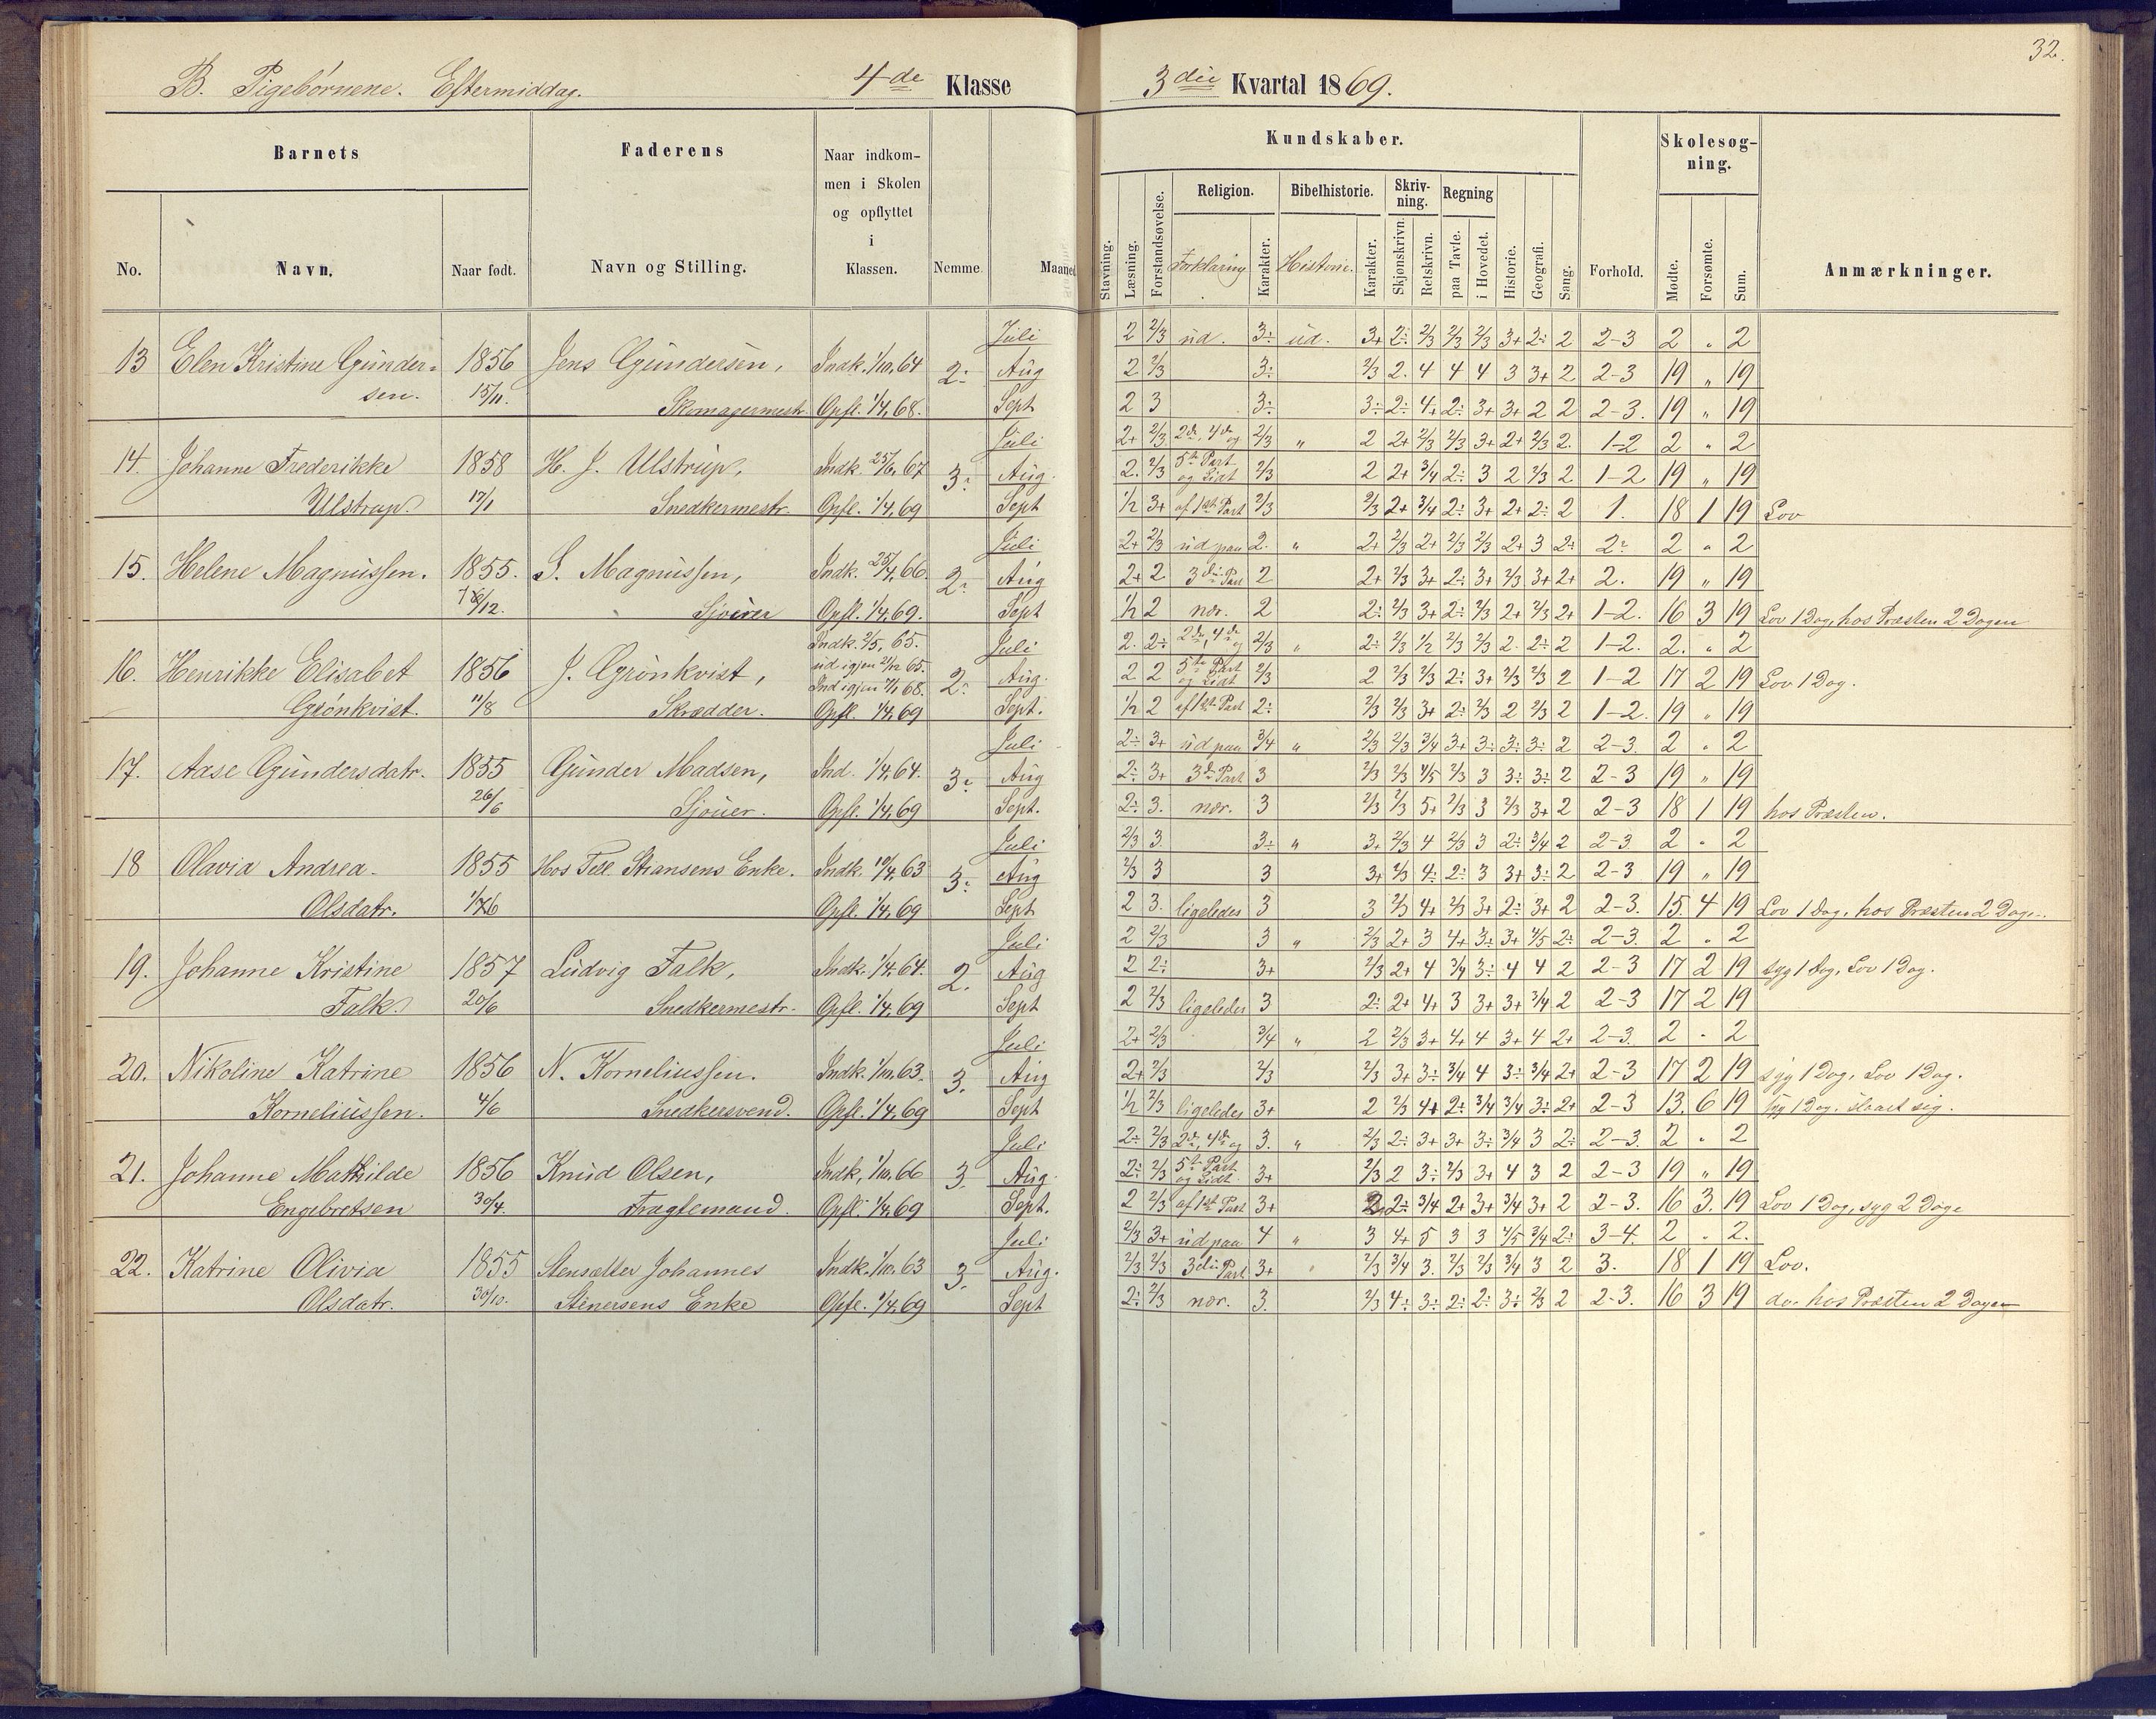 32.
B. Pigebørnene. Eftermiddag. 4de Klasse 3die Kvartal 1869.
Barnets Faderens Naar indkommen i Skolen og opflyttet i Klassen. Nemme. Maaned Kundskaber. Forhold. Skolesøgning. Anmærkninger.
No. Navn. Naar født. Navn og Stilling.
Stavning. Læsning. Forstandsøvelse. Religion. Forklaring Karakter. Bibelhistorie. Historie. Karakter. Skrivning. Skjønskrivn. Retskrivn. Regning paa Tavle. i Hovedet. Historie. Geografi. Sang. Mødte. Forsømte. Sum.
Juli 2 2/3 ud. 3÷ ud. 3+ 2÷ 2/3 2/3 2/3 3+ 2÷ 2 2-3 2 " 2
13 Elen Kristine Gunder= 1856 Jens Gundersen, Indk. 1/10,64 2÷ Aug 2 2/3 3÷ 2/3 2. 4 4 4 3 3+ 2 2-3 19 " 19
sen. 15/11. Skomagermestr. Opfl. 1/4,68. Sept 2 3 3÷ 3÷ 2÷ 4+ 2÷ 3+ 3+ 2 2 2-3. 19 " 19
Juli 2+ 2/3 2de, 4de og 2/3 " 2 2+ 2/3 2/3 3+ 2+ 2/3 2. 1-2 2 " 2
14. Johanne Frederikke 1858 H. J. Ulstrup, Indk. 25/6,67 3÷ Aug. 2. 2/3 5te Part og Lidt 2/3 2 2+ 3/4 2÷ 3 2 2/3 2 1-2 19 " 19
Ulstrup. 17/1 Snedkermestr. Opfl. 1/4,69 Sept 1/2 3+ af 1ste Part 2/3 2/3 2+ 3/4 2÷ 3+ 2+ 2÷ 2 1. 18 1 19 Lov
Juli 2+ 2/3 ud paa 2. " 2+ 2/3 2+ 2/3 2/3 2+ 3 2+ 2÷ 2 " 2
15. Helene Magnussen. 1855. S. Magnussen, Indk. 25/4,66. 2÷ Aug 2+ 2 3die Part 2 2+ 2/3 3+ 2÷ 3+ 2/3 3+ 2+ 2. 19 " 19
Sjouer Opfl. 1/4,69. Sept 1/2 2 nær. 2 2÷ 2/3 3+ 2÷ 2/3 2+ 2/3 2+ 1-2. 16 3 19 Lov 1 Dag, hos Præsten 2 Dagen
Indk. 2/5, 65. Juli 2. 2÷ 2de, 4de og 2/3 " 2÷ 2/3 1/2 2/3 2/3 2. 2÷ 2 1-2. 2. " 2
16. Henrikke Elisabet 1856 J. Grønkvist, ud igjen 21/12 65. Ind igjen 7/1 68. 2÷ Aug. 2 2 5te Part og Lidt 2/3 2 2/3 2/3 2÷ 3+ 2/3 2/3 2 1-2 17 2 19 Lov 1 Dag.
Grønkvist. 11/8 Skrædder. Opfl. 1/4,69 Sept. 1/2 2 af 1ste Part 2÷ 2/3 2/3 3+ 2÷ 2/3 2 2/3 2 1-2. 19 " 19
Juli 2÷ 3+ ud paa 3/4 " 2/3 2/3 3/4 3+ 3÷ 3÷ 3÷ 2 2-3. 2 " 2
17. Aase Gundersdatr. 1855 Gunder Madsen, Ind. 1/4,64. 3÷ Aug 2÷ 3+ 3die Part 3 2/3 2/3 4/5 2/3 3 3÷ 3÷ 2 2-3 19 " 19
26/6 Sjouer. Opfl. 1/4,69 Sept. 2÷ 3. nær. 3 2/3 2/3 5+ 2/3 3 2/3 3+ 2 2-3 18 1 19 hos Præsten.
Juli 2/3 3. 3÷ " 3+ 2/3 4 2/3 3 2÷ 3/4 2 2-3. 2 " 2
18 Olavia Andrea 1855 Hos Tell. Stiansens Enke. Indk. 10/4,63 3÷ Aug 2/3 3 3 3+ 2/3 4÷ 2÷ 3 3+ 3÷ 2 2-3 19 " 19
Olsdatr. Opfl. 1/4,69 Sept 2 3. ligeledes 3 3 2/3 4+ 2/3 3+ 2÷ 3+ 2 2-3. 15. 4 19 Lov 1 Dag, hos Præsten 2 Dage.
Juli 2 2/3 3 " 2/3 2+ 3 4+ 3÷ 3+ 4/5 2÷ 2-3. 2 " 2
19. Johanne Kristine 1857 Ludvig Falk, Indk. 1/4,64. 2. Aug 2 2÷ 3+ 2/3 2+ 4 3/4 3÷ 4 4 2 2-3 17 2 19 syg 1 Dag, Lov 1 Dag.
Falk. 20/6 Snedkermestr. Opfl. 1/4,69 Sept 2 2/3 ligeledes 3 2÷ 2+ 4+ 3 3+ 3+ 3/4 2 2-3 17 2 19
Juli 2+ 2/3 3/4 " 2 2/3 3+ 4+ 4 3+ 4 2+ 2-3. 2 " 2
20. Nikoline Katrine 1856 N. Korneliussen. Indk. 1/10,63. 3. Aug 2+ 2/3 2/3 2/3 3+ 3÷ 3/4 4 3÷ 3/4 2+ 2-3 17 2 19 syg 1 Dag, Lov 1 Dag.
Korneliussen. 4/6 Snedkersvend. Opfl. 1/4,69 Sept 1/2 2/3 ligeledes 3+ 2 2/3 4+ 2÷ 3/4 3/4 3÷ 2+ 2-3 13. 6 19 Syg 1 Dag, slaaet sig.
Juli 2÷ 2/3 2de, 4de og 3. " 2/3 2÷ 3+ 3+ 3÷ 3/4 3 2÷ 2-3. 2 " 2
21. Johanne Mathilde 1856 Knud Olsen, Indk, 1/10,66 3. Aug. 2÷ 2/3 5te Part og Lidt 3+ 2/3 2 3÷ 2/3 3+ 4 3 2 2-3 19 " 19
Engebretsen 30/4. Fragtemand. Opfl. 1/4,69 Sept. 2 2/3 af 1ste Part 3+ 2 2÷ 3/4 2+ 3+ 3/4 3+ 2 2-3. 16 3. 19 Lov 1 Dag, syg 2 Dage
Juli 2/3 3+ ud paa 4 " 3 4+ 5 3 3 4/5 3/4 2÷ 3-4. 2 " 2.
22. Katrine Olivia 1855 Stensætter Johannes Indk. 1/10,63 3. Aug. 2/3 2/3 3die Part 3+ " 2/3 3/4 3. 2/3 2/3 3/4 3 2 3. 18 1 19 Lov.
Olsdatr. 30/10. Stinersens Enke Opfl. 1/4,69 Sept 2÷ 2/3 nær. 3. 2/3 4÷ 3÷ 2÷ 2÷ 3÷ 2/3 2 2-3. 16 3 19 do. hos Præsten 2 Dagen